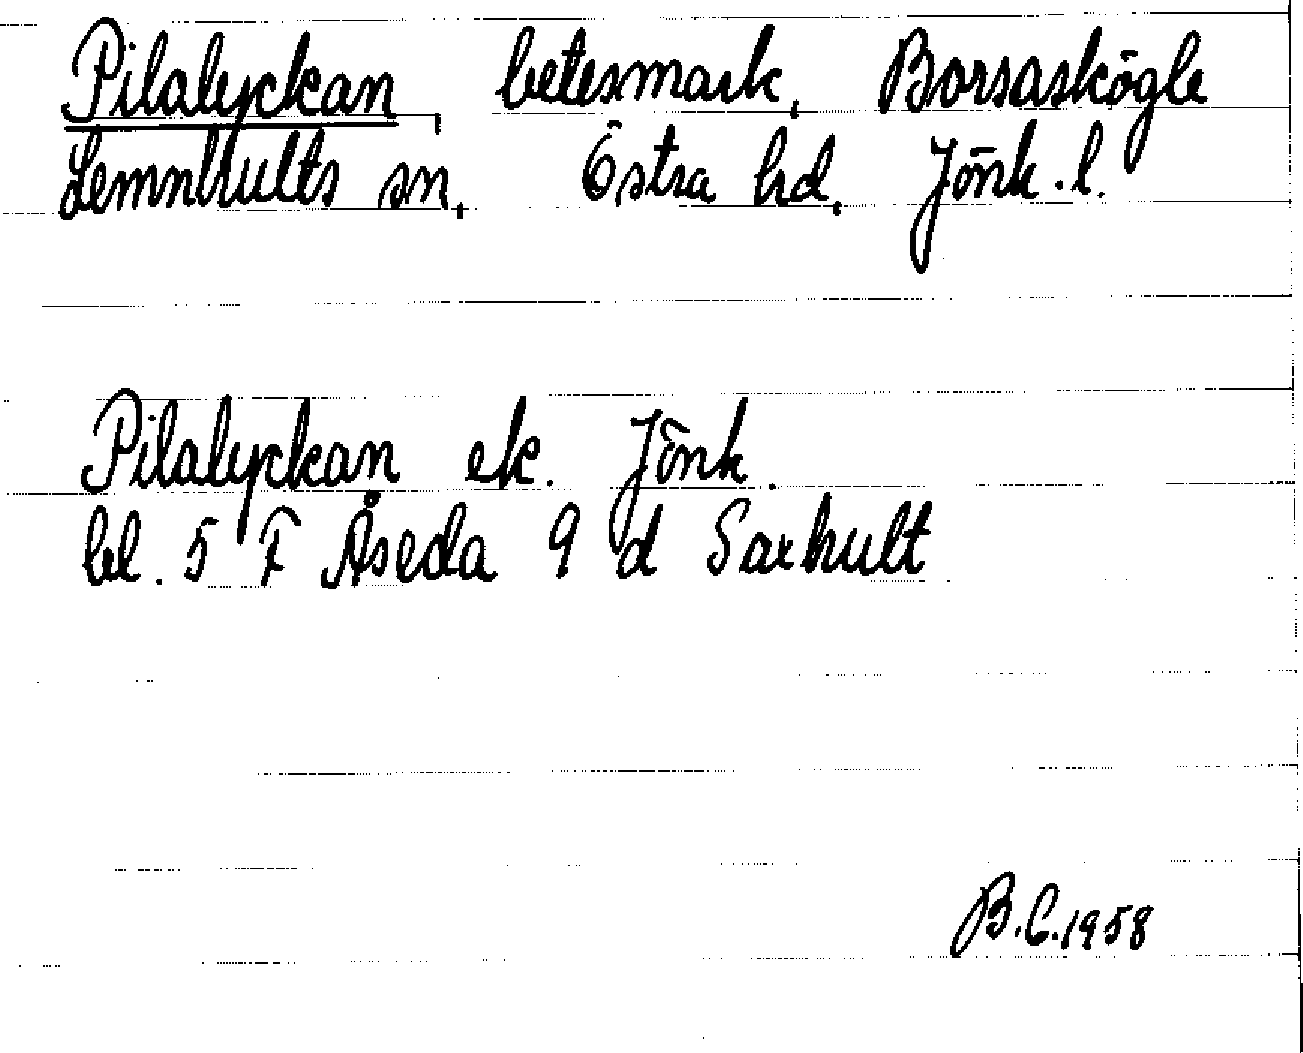 Pilalyckan, betesmark, Borsaskögle
Lemnhults sn, Östra hd, Jönk. l.
Pilalyckan ek. Jönk.
bl. 5 F Åseda 9 d Saxhult
B.C. 1958